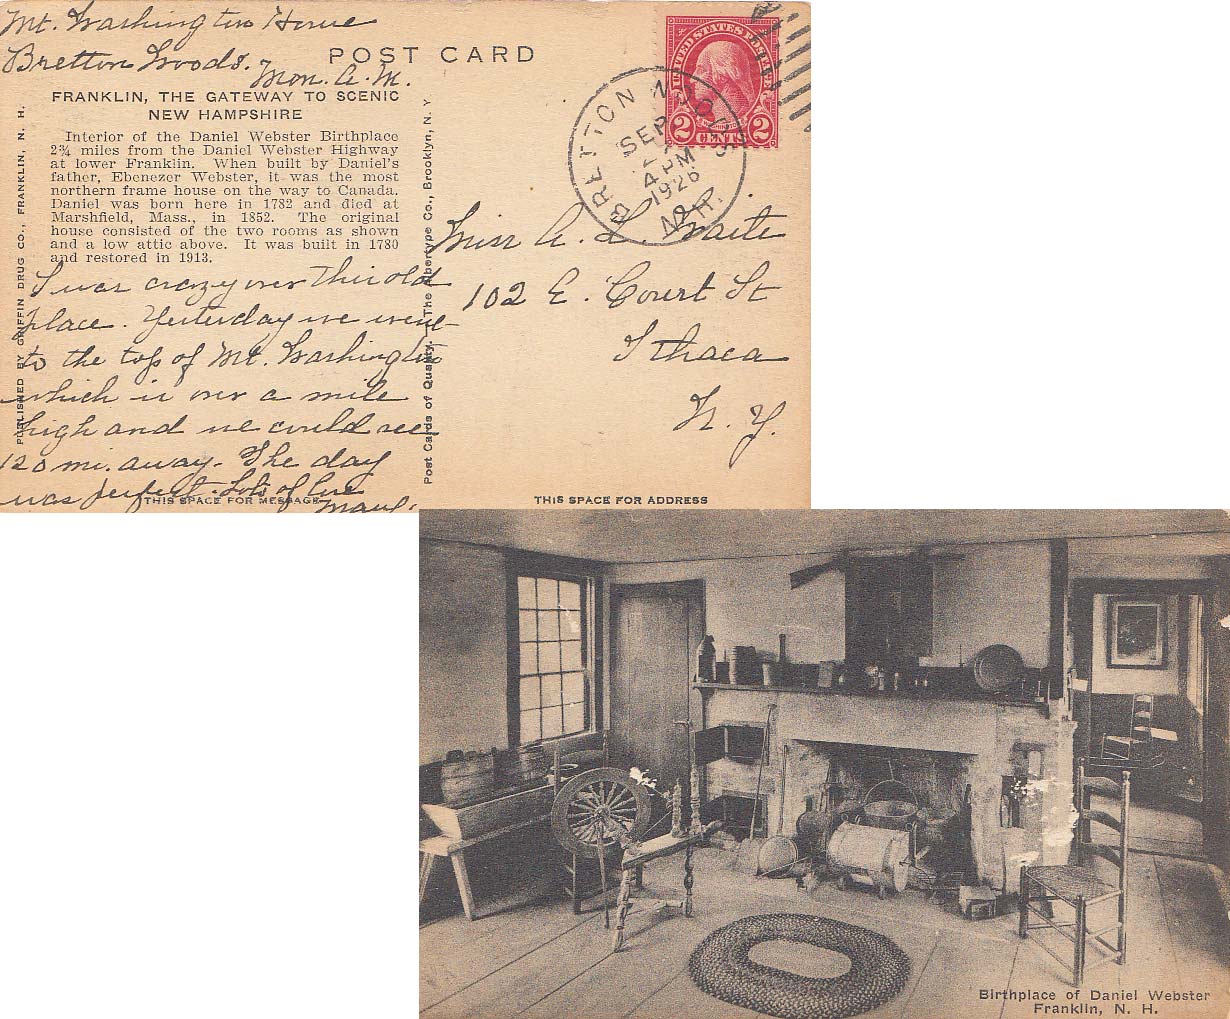 Mt. Washington House
Bretton Woods.
Mon. A.M.
POST CARD
FRANKLIN, THE GATEWAY TO SCENIC
NEW HAMPSHIRE
Interior of the Daniel Webster Birthplace
2¾ miles from the Daniel Webster Highway
at lower Franklin. When built by Daniel's
father, Ebenezer Webster, it was the most
northern frame house on the way to Canada.
Daniel was born here in 1782 and died at
Marshfield, Mass., in 1852. The original
house consisted of the two rooms as shown
and a low attic above. It was built in 1780
and restored in 1913.
I was crazy over this old
place. Yesterday we went
to the top of Mt. Washington
which is over a mile
high and we could see
120 mi. away. The day
was perfect. Lots of love
THIS SPACE FOR MESSAGE
PUBLISHED BY GRIFFIN DRUG CO., FRANKLIN, N. H.
Post Cards of Quality. The Albertype Co., Brooklyn, N. Y
UNITED STATES POSTAGE
WASHINGTON
2 CENTS 2
BRETTON WOODS
SEP
4 PM
1926
N.H.
Miss A. L. Waite
102 E. Court St
Ithaca
N. Y.
THIS SPACE FOR ADDRESS
Birthplace of Daniel Webster
Franklin, N. H.